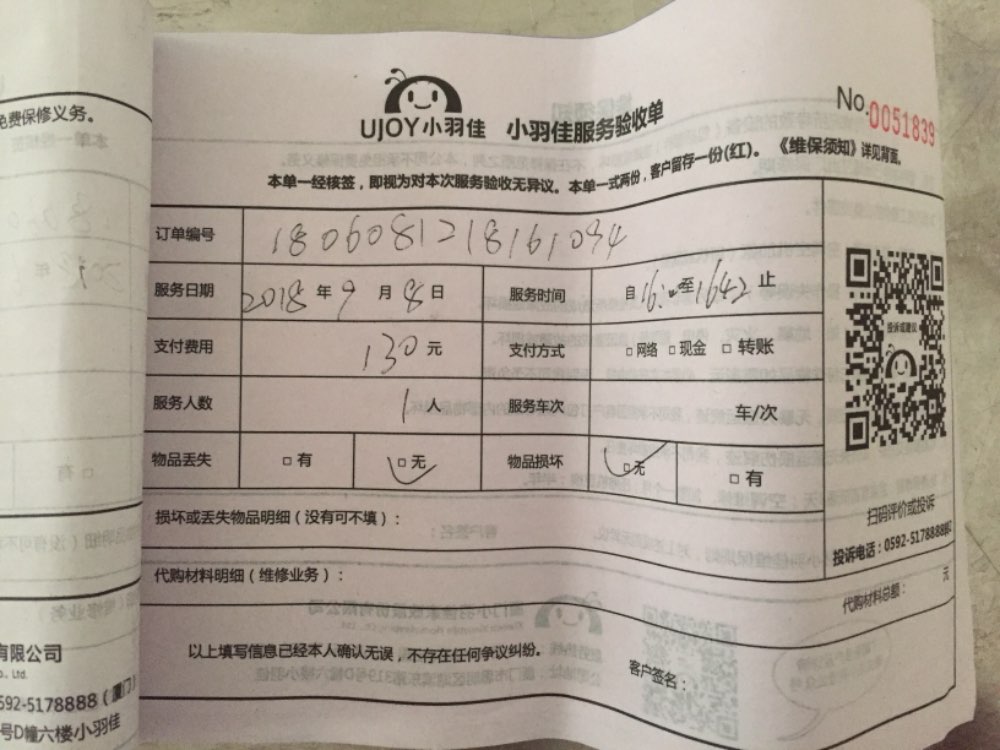 免费保修义务。
UJOY小羽佳 小羽佳服务验收单
No.0051839
本单一经核签，即视为对本次服务验收无异议。本单一式两份，客户留存一份(红)。《维保须知》详见背面。
订单编号 1806081218161094
服务日期 2018年9月8日 服务时间 自16:00至1642止
支付费用 130元 支付方式 □网络 □现金 □转账
服务人数 1人 服务车次 车/次
物品丢失 □有 □无 物品损坏 □无 □有
损坏或丢失物品明细（没有可不填）：
代购材料明细（维修业务）：
代购材料总额： 元
以上填写信息已经本人确认无误，不存在任何争议纠纷。
客户签名：
投诉或建议
扫码评价或投诉
投诉电话：0592-5178888转
有限公司
o., Ltd.
592-5178888（厦门）
号D幢六楼小羽佳